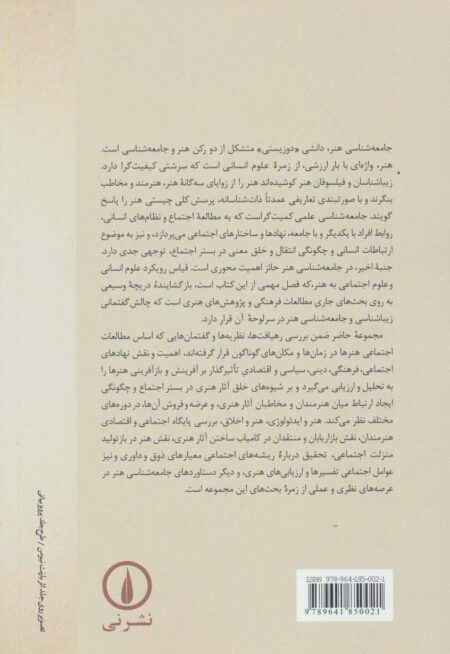 جامعه‌شناسی هنر، دانشی «دوزیستی» متشکل از دو رکن هنر و جامعه‌شناسی است.
هنر، واژه‌ای با بار ارزشی، از زمرهٔ علوم انسانی است که سرشتی کیفیت‌گرا دارد.
زیباشناسان و فیلسوفان هنر کوشیده‌اند هنر را از زوایای سه‌گانهٔ هنر، هنرمند و مخاطب
بنگرند و با صورتبندی تعاریفی عمدتاً ذات‌شناسانه، پرسش کلی چیستی هنر را پاسخ
گویند. جامعه‌شناسی علمی کمیت‌گراست که به مطالعهٔ اجتماع و نظام‌های انسانی،
روابط افراد با یکدیگر و با جامعه، نهادها و ساختارهای اجتماعی می‌پردازد، و نیز به موضوع
ارتباطات انسانی و چگونگی انتقال و خلق معنی در بستر اجتماع، توجهی جدی دارد.
جنبهٔ اخیر، در جامعه‌شناسی هنر حائز اهمیت محوری است. قیاس رویکرد علوم انسانی
و علوم اجتماعی به هنر، که فصل مهمی از این کتاب است، بازگشایندهٔ دریچهٔ وسیعی
به روی بحث‌های جاریِ مطالعات فرهنگی و پژوهش‌های هنری است که چالش گفتمانی
زیباشناسی و جامعه‌شناسی هنر در سرلوحهٔ آن قرار دارد.
مجموعهٔ حاضر ضمن بررسی رهیافت‌ها، نظریه‌ها و گفتمان‌هایی که اساس مطالعات
اجتماعی هنرها در زمان‌ها و مکان‌های گوناگون قرار گرفته‌اند، اهمیت و نقش نهادهای
اجتماعی، فرهنگی، دینی، سیاسی و اقتصادیِ تأثیرگذار بر آفرینش و بازآفرینی هنرها را
به تحلیل و ارزیابی می‌گیرد و بر شیوه‌های خلق آثار هنری در بستر اجتماع و چگونگی
ایجاد ارتباط میان هنرمندان و مخاطبان آثار هنری، و عرضه و فروش آن‌ها، در دوره‌های
مختلف نظر می‌کند. هنر و ایدئولوژی، هنر و اخلاق، بررسی پایگاه اجتماعی و اقتصادی
هنرمندان، نقش بازاریابان و منتقدان در کامیاب ساختن آثار هنری، نقش هنر در بازتولید
منزلت اجتماعی، تحقیق دربارهٔ ریشه‌های اجتماعی معیارهای ذوق و داوری و نیز
عوامل اجتماعی تفسیرها و ارزیابی‌های هنری، و دیگر دستاوردهای جامعه‌شناسی هنر در
عرصه‌های نظری و عملی از زمرهٔ بحث‌های این مجموعه است.
تصویر روی جلد از بارنت نیومن / طرح جلد: پرویز بیانی
نشر نی
ISBN 978-964-185-002-1
9 789641 850021